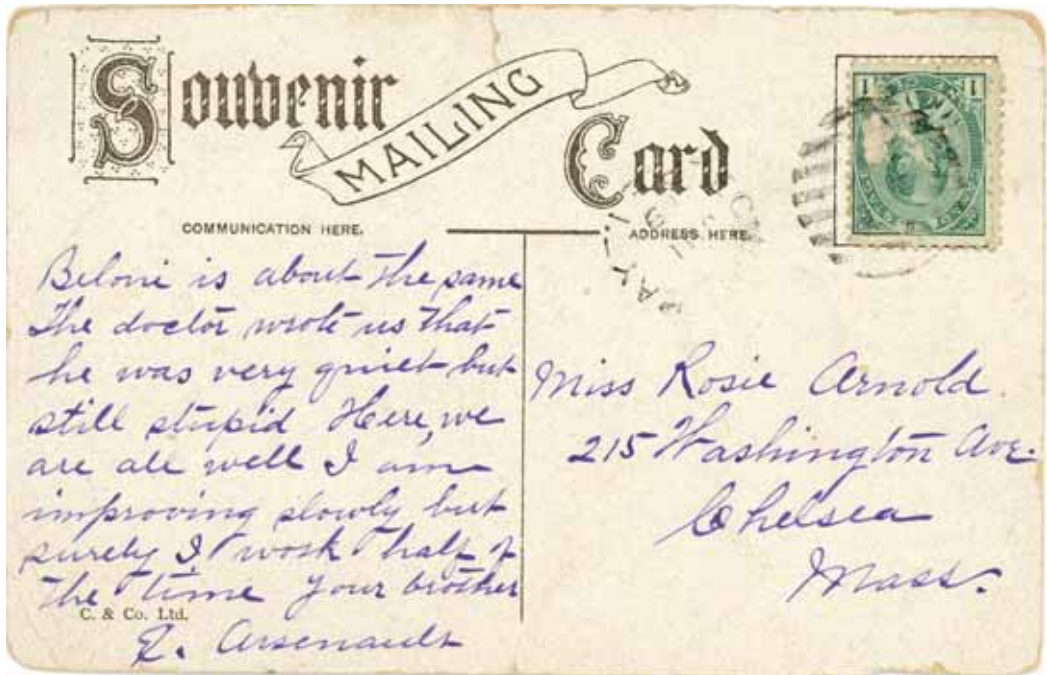 Souvenir
MAILING
Card
COMMUNICATION HERE.
ADDRESS HERE.
1 1
Beloni is about the same
The doctor wrote us that
he was very quiet but
still stupid Here, we
are all well I am
improving slowly but
surely I work half of
the time Your brother
C. & Co. Ltd.
Arsenault
Miss Rosie Arnold.
215 Washington Ave.
Chelsea
Mass.